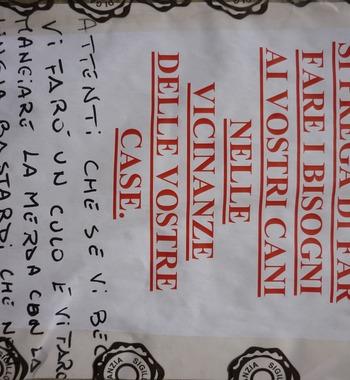 SI PREGA DI FAR
FARE I BISOGNI
AI VOSTRI CANI
NELLE
VICINANZE
DELLE VOSTRE
CASE.
ATTENTI CHE SE VI BEC
VI FARÓ UN CULO E VI FARÓ
MANGIARE LA MERDA CON LA
LINGUA BASTARDI CHE N
ANZIA SIGIL